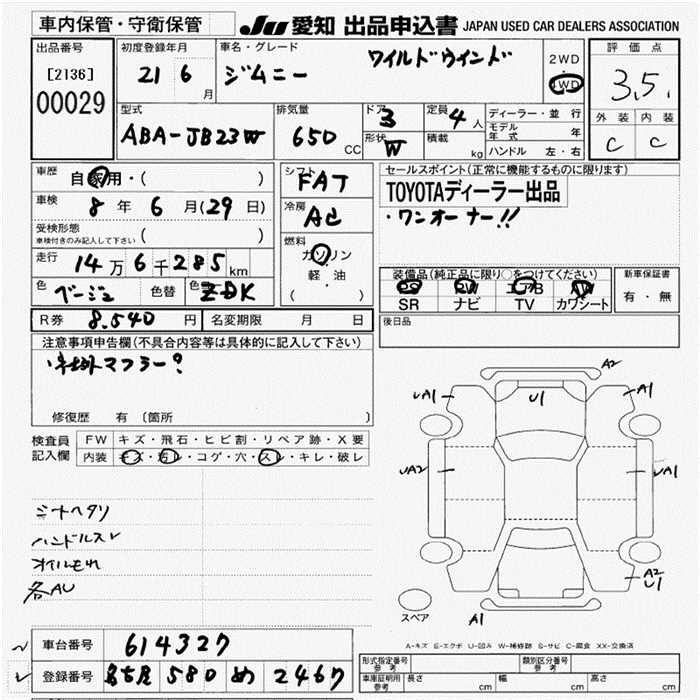 車内保管・守衛保管
JU 愛知 出品申込書 JAPAN USED CAR DEALERS ASSOCIATION
出品番号
[2136]
00029
初度登録年月
21 6 月
車名・グレード
ジムニー ワイルドウインド
2WD
4WD
評価点
3.5
外装 内装
C C
型式
ABA-JB23W
排気量
650 CC
ドア 3
形状 W
定員 4 人
積載 kg
ディーラー・並行
モデル年式 年
ハンドル 左・右
車歴 自家用・( )
車検 8 年 6 月(29 日)
受検形態
車検付きのみ記入して下さい ( )
走行 14万6千285km
色 ベージュ 色替 色No ZDK
シフト FAT
冷房 AC
燃料
ガソリン
・
軽・油
( )
セールスポイント(正常に機能するものに限ります)
TOYOTAディーラー出品
・ワンオーナー!!
装備品(純正品に限り○をつけてください)
PS PW エアB AW
SR ナビ TV カワシート
新車保証書
有・無
後日品
R券 8,540 円 名変期限 月 日
注意事項申告欄(不具合内容等は具体的に記入して下さい)
・社外マフラー?
修復歴 有 〔箇所 〕
検査員記入欄
FW キズ・飛石・ヒビ割・リペア跡・X要
内装 キズ・汚レ・コゲ・穴・スレ・キレ・破レ
シートヘタリ
ハンドルスレ
オイルもれ
各AU
A2
UA1 U1 A1
UA2 UA1
A2
U1
A1
スペア
A-キズ E-エクボ U-凹み W-補修跡 S-サビ C-腐食 XX-交換済
車台番号 614327
登録番号 名古屋 580 め 2467
形式指定番号
参考
類別区分番号
参考
車庫証明用
参考
長さ cm 幅 cm 高さ cm